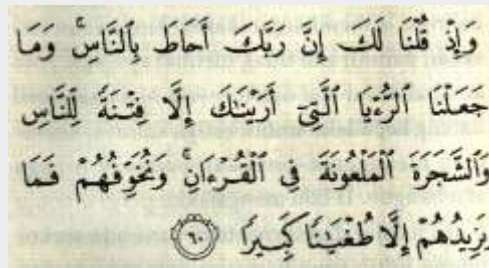 وَإِذْ قُلْنَا لَكَ إِنَّ رَبَّكَ أَحَاطَ بِٱلنَّاسِ ۚ وَمَا
جَعَلْنَا ٱلرُّءْيَا ٱلَّتِىٓ أَرَيْنَـٰكَ إِلَّا فِتْنَةً لِّلنَّاسِ
وَٱلشَّجَرَةَ ٱلْمَلْعُونَةَ فِى ٱلْقُرْءَانِ ۚ وَنُخَوِّفُهُمْ فَمَا
يَزِيدُهُمْ إِلَّا طُغْيَـٰنًا كَبِيرًا ٦٠